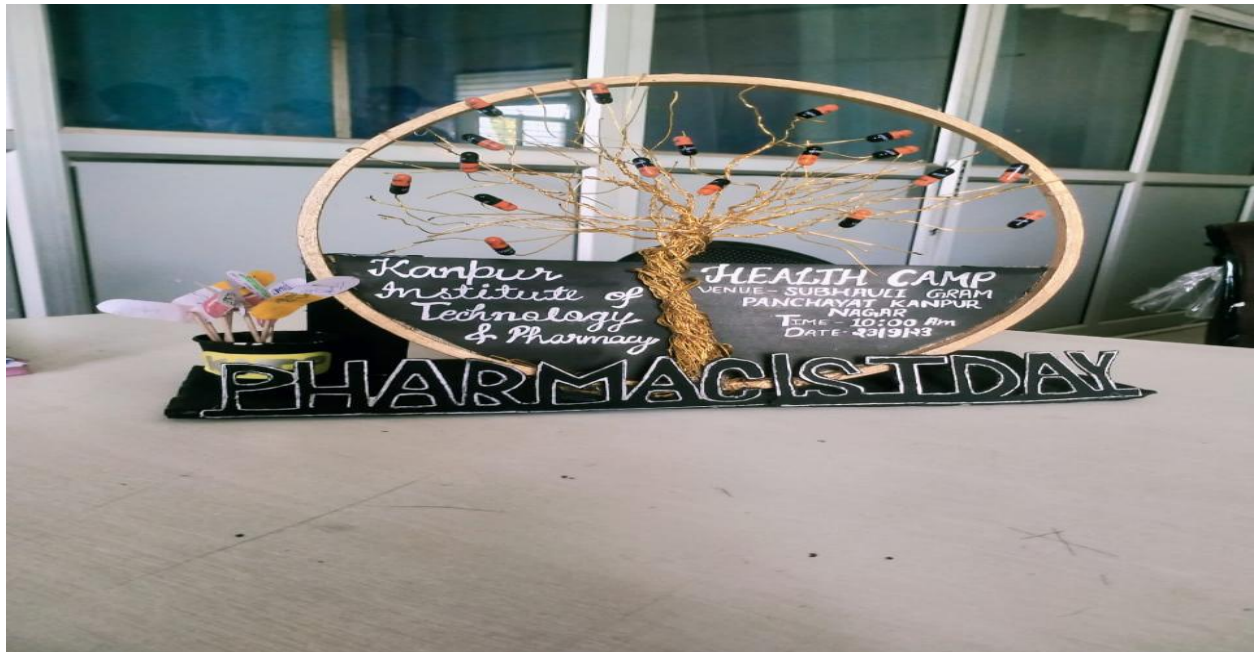 Kanpur
Institute of
Technology
& Pharmacy
HEALTH CAMP
VENUE - SUBHAULI GRAM
PANCHAYAT KANPUR
NAGAR
TIME - 10:00 Am
DATE - 23/9/23
PHARMACIST DAY